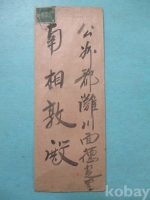 公州郡灘川面德芝里
南相敦殿
kobay